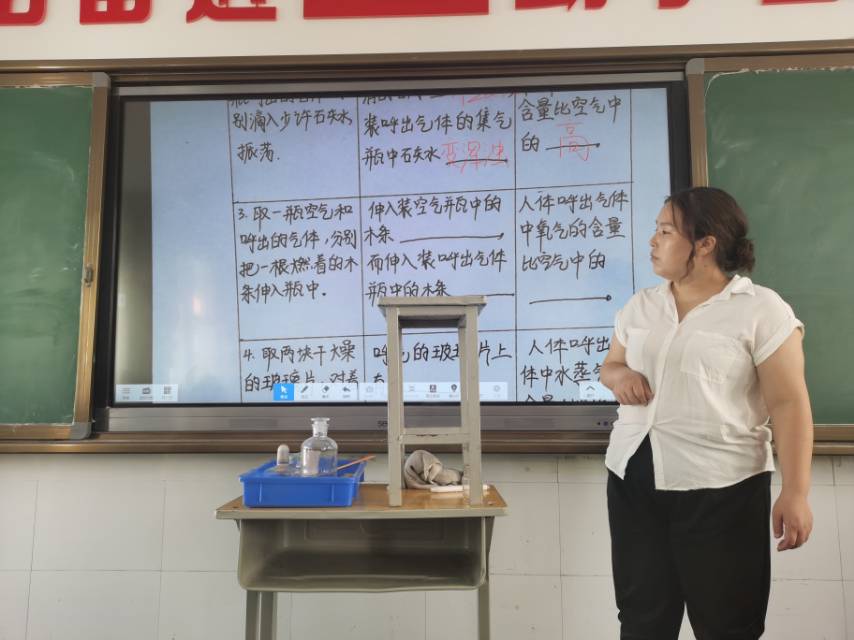 别滴入少许石灰水,
振荡.
装呼出气体的集气
瓶中石灰水 变浑浊
含量比空气中
的 高 .
3. 取一瓶空气和
呼出的气体,分别
把一根燃着的木
条伸入瓶中.
伸入装空气瓶中的
木条 ,
而伸入装呼出气体
瓶中的木条
人体呼出气体
中氧气的含量
比空气中的
.
4. 取两块干燥
的玻璃片,对着
呼气的玻璃片上
人体呼出
体中水蒸气